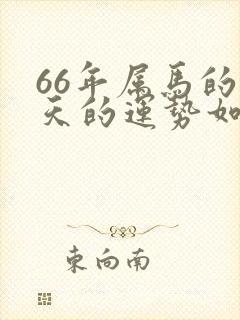 66年属馬的
天的運勢如
東向南